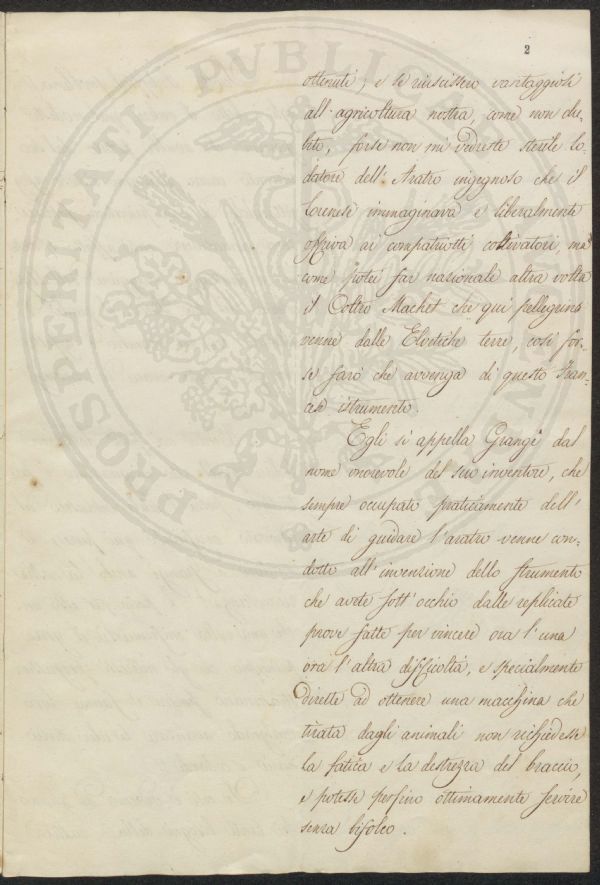 2
ottenuti; e se riuscissero vantaggiosi
all'agricoltura nostra, come non du-
bito, forse non mi vedreste sterile lo-
datore dell'Aratro ingegnoso che il
Lorenese immaginava e liberalmente
offriva ai conpatriotti coltivatori, ma
come potei far nazionale altra volta
il Coltro Machet che qui pellegrino
venne dalle Elvetiche terre, così for-
se farò che avvenga di questo Fran-
cese istrumento.
Egli si appella Grangé dal
nome onorevole del suo inventore, che
sempre occupato praticamente dell'
arte di guidare l'aratro venne con-
dotto all'invenzione dello strumento
che avete sott'occhio dalle replicate
prove fatte per vincere ora l'una
ora l'altra difficoltà, e specialmente
dirette ad ottenere una macchina che
tirata dagli animali non richiedesse
la fatica e la destrezza del braccio,
e potesse persino ottimamente servire
senza bifolco.
PROSPERITATI PUBLICAE